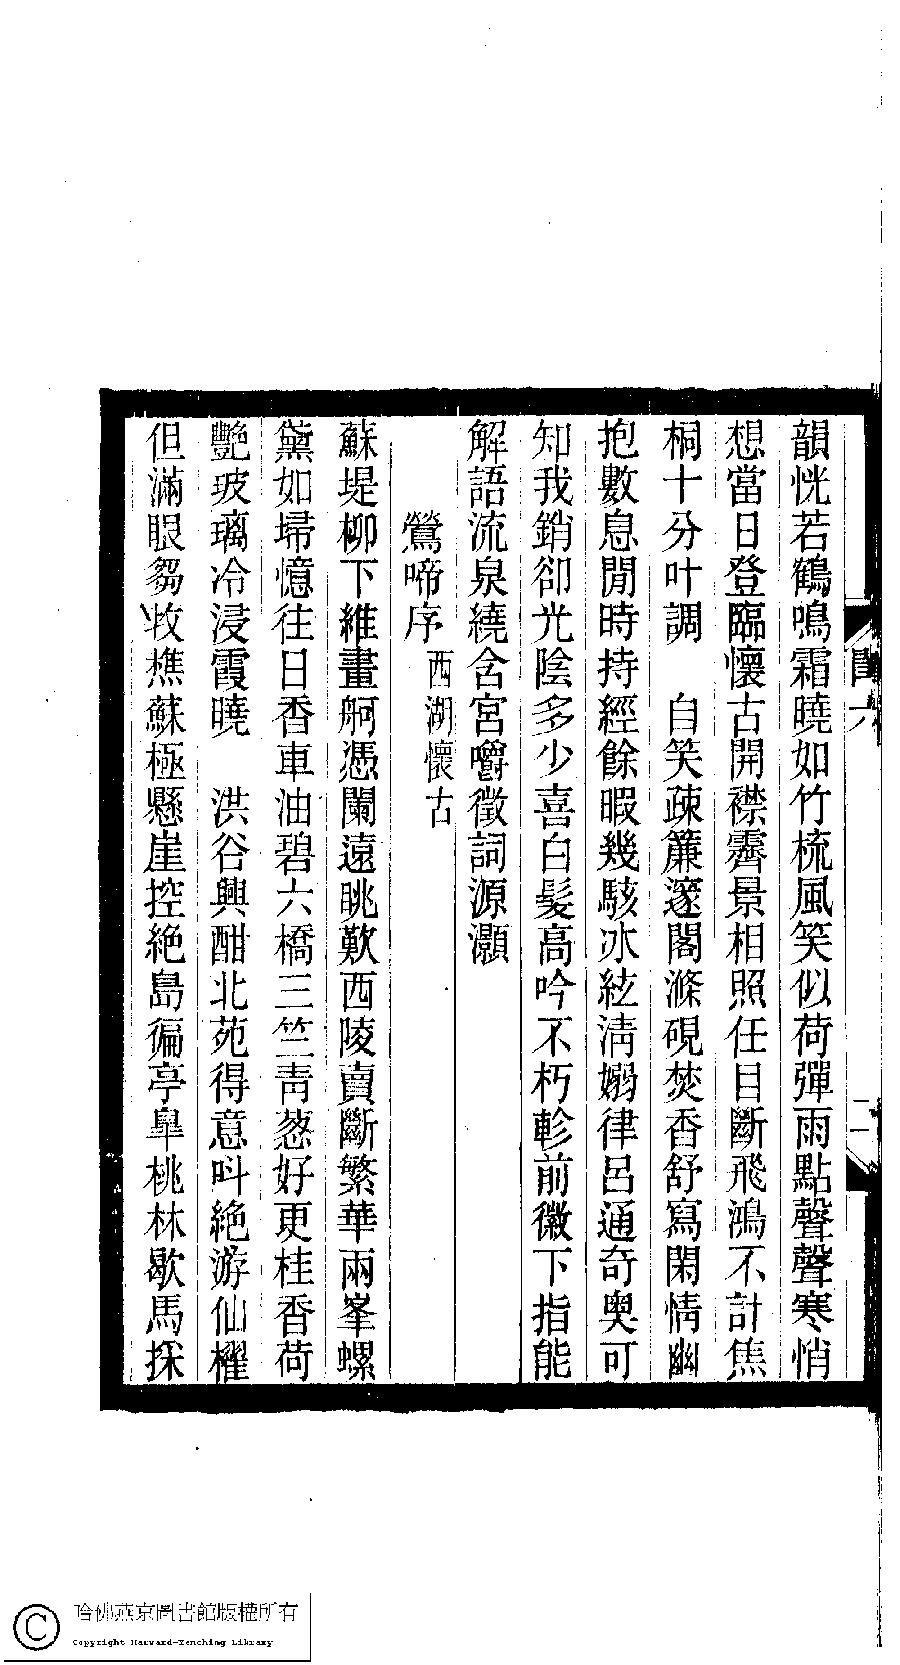 韻恍若鶴鳴霜曉如竹梳風笑似荷彈雨點聲聲寒悄
想當日登臨懷古開襟霽景相照任目斷飛鴻不計焦
桐十分叶調　自笑疎簾邃閣滌硯焚香舒寫閑情幽
抱數息閒時持經餘暇幾駭冰絃淸嫋律呂通奇奧可
知我銷卻光陰多少喜白髮高吟不朽軫前徽下指能
解語流泉繞含宮嚼徵詞源灝
鶯啼序 西湖懷古
蘇堤柳下維畫舸憑闌遠眺歎西陵賣斷繁華兩峯螺
黛如埽憶往日香車油碧六橋三竺靑葱好更桂香荷
艷玻璃冷浸霞曉　洪谷興酣北苑得意叫絶游仙櫂
但滿眼芻牧樵蘇極懸崖控絶島徧亭皐桃林歇馬採
二
哈佛燕京圖書館版權所有
Copyright Harvard-Yenching Library